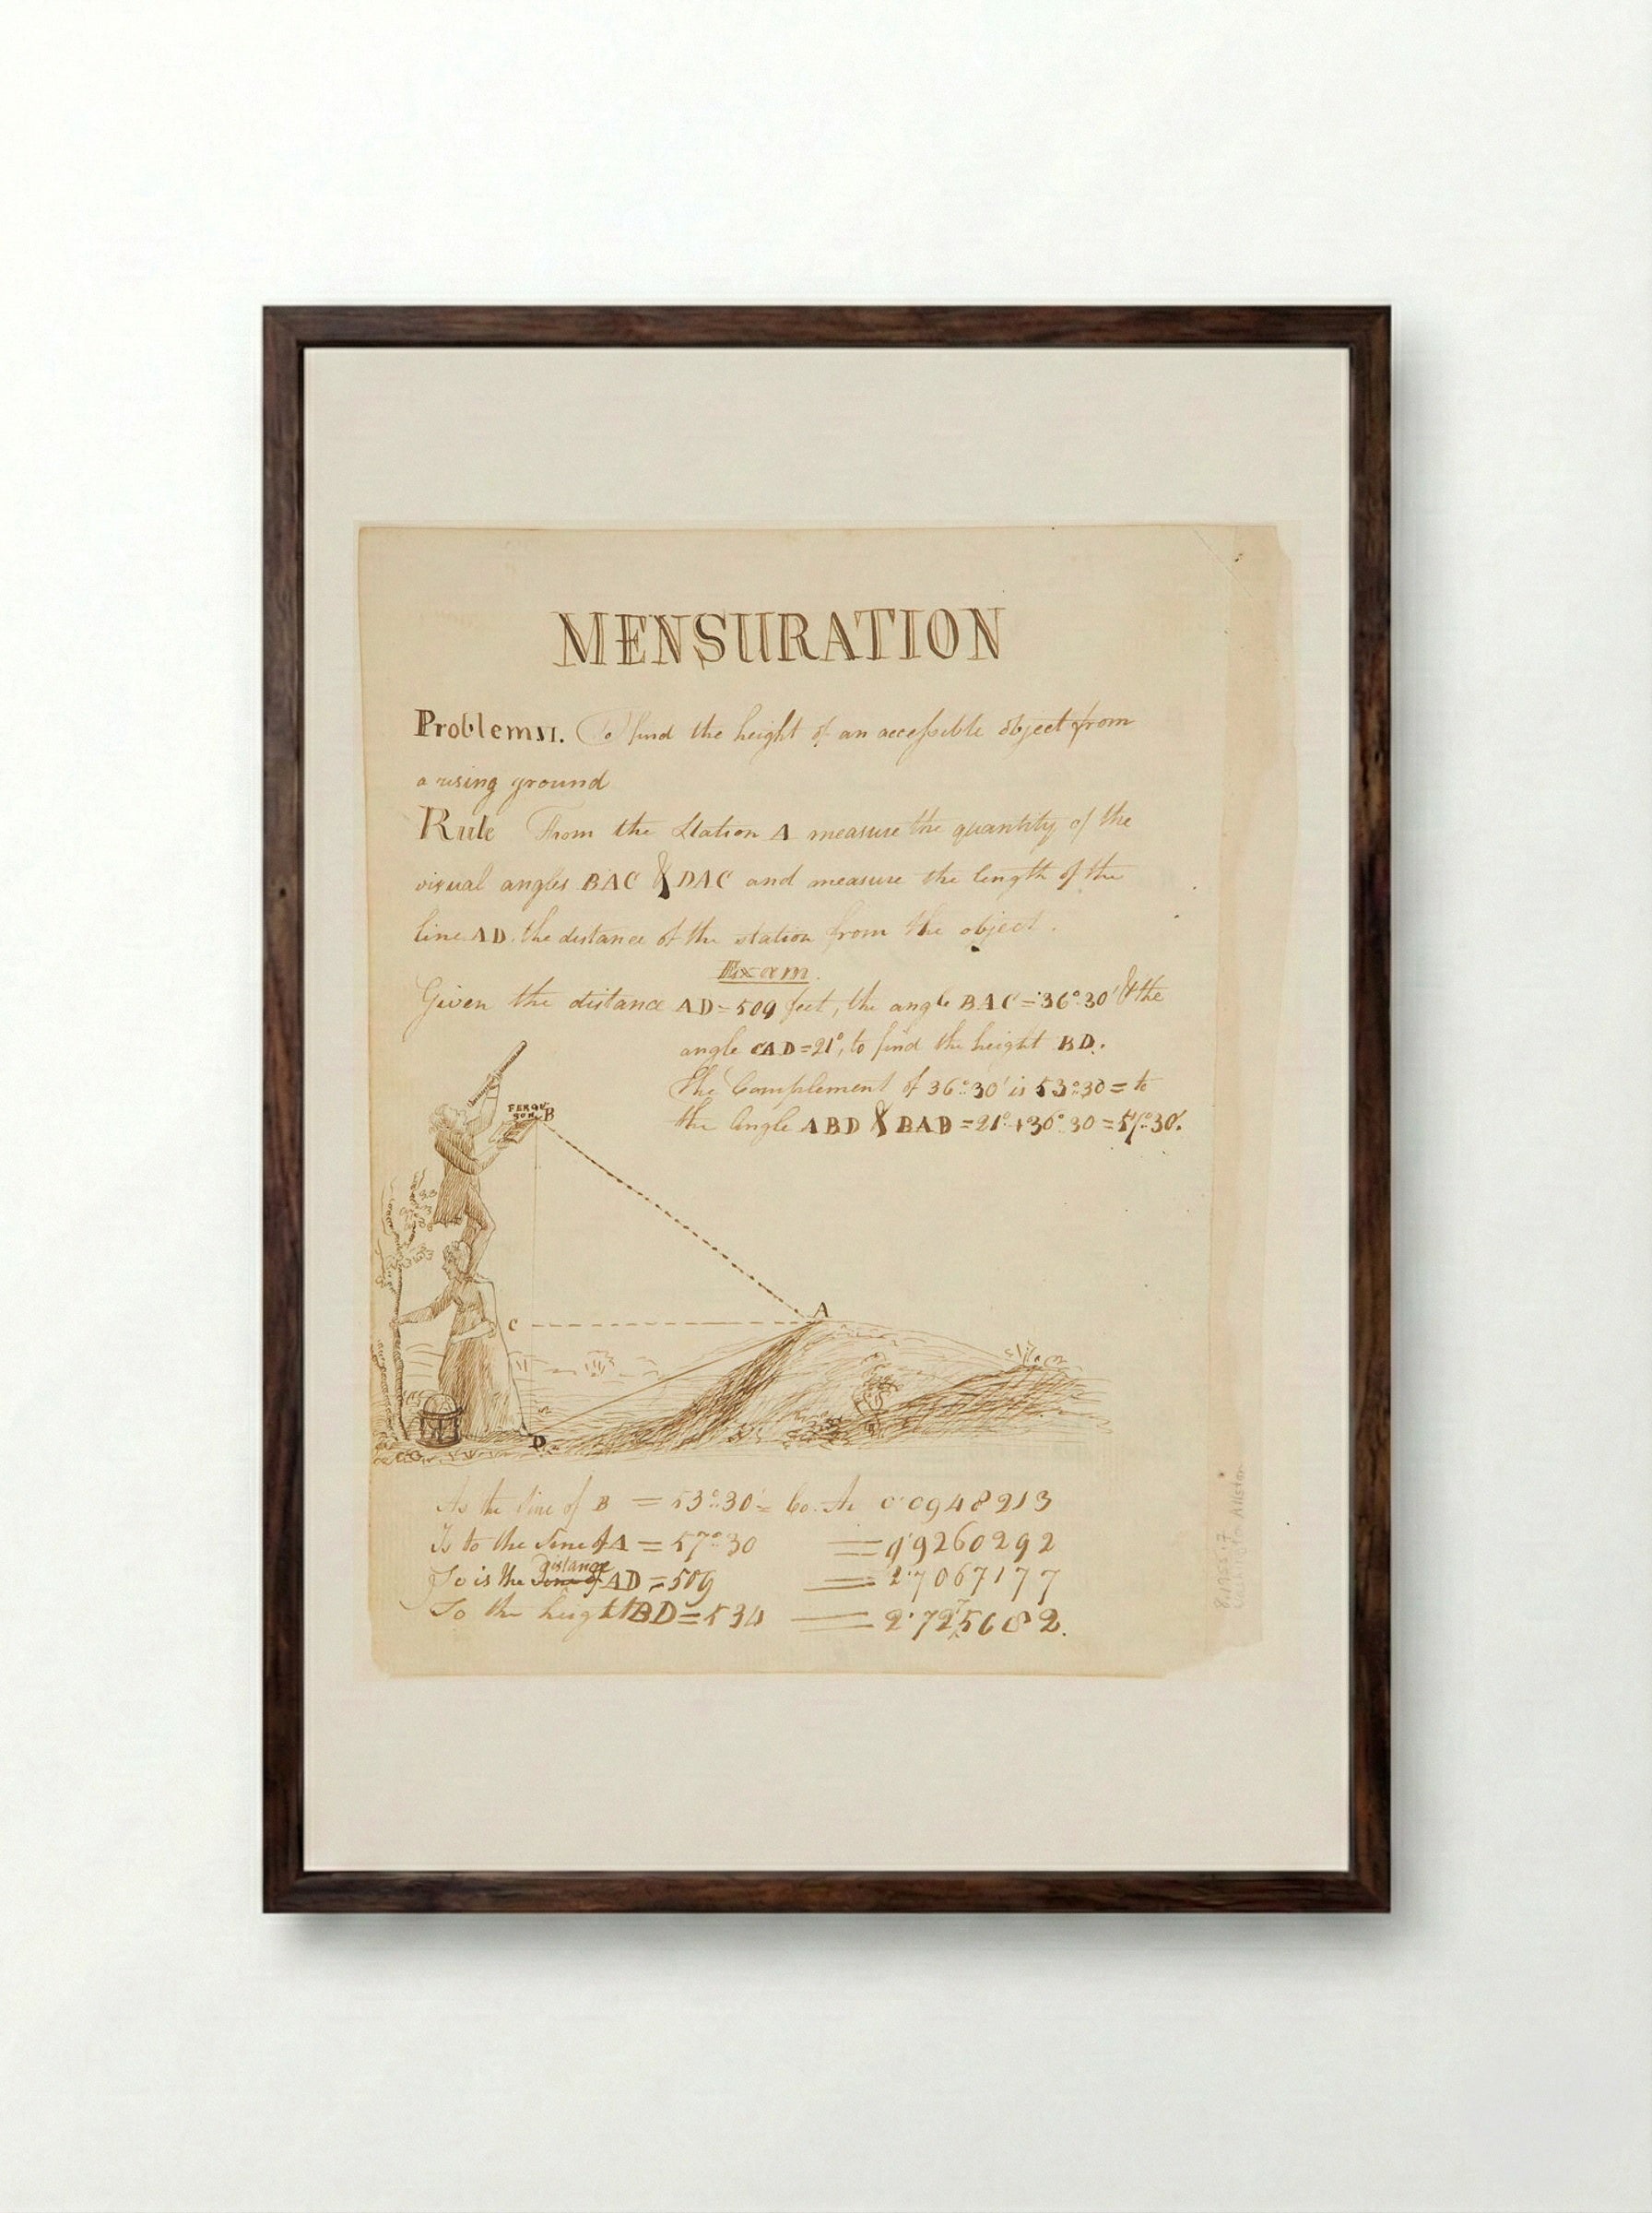 MENSURATION
Problem VI. To find the height of an accessible object from
a rising ground
Rule From the Station A measure the quantity of the
visual angles BAC & DAC and measure the length of the
line AD. the distance of the station from the object.
Exam.
Given the distance AD=509 feet, the angle BAC=36°30' & the
angle CAD=21°, to find the height BD.
The Complement of 36°30' is 53°30= to
the Angle ABD & BAD=21°+36°30=57°30'.
FERGU
SON
B
A
C
D
As the Sine of B = 53°30'= Co. Ar 0'0948213
Is to the Sine of A = 57°30 =9'9260292
So is the Distance of AD=509 = 2'7067177
To the height BD=534 = 2'7275682.
8.1955.7
Washington Allston